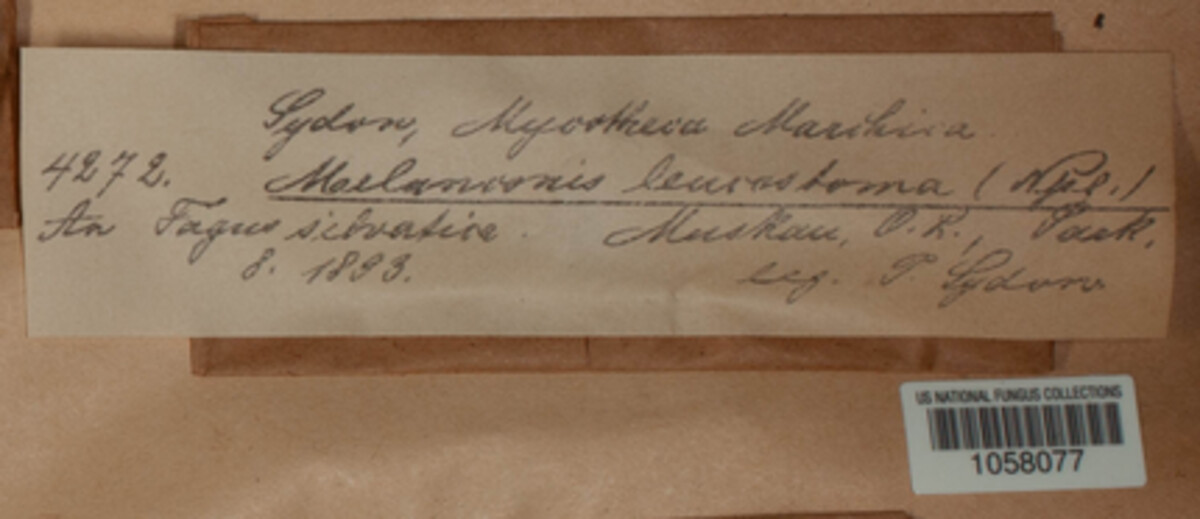 Sydow, Mycotheca Marchica
4272. Melanconis leucostoma (Npl.)
An Fagus silvatica. Muskau, O. L., Park.
8. 1893. leg. P. Sydow.
US NATIONAL FUNGUS COLLECTIONS
1058077